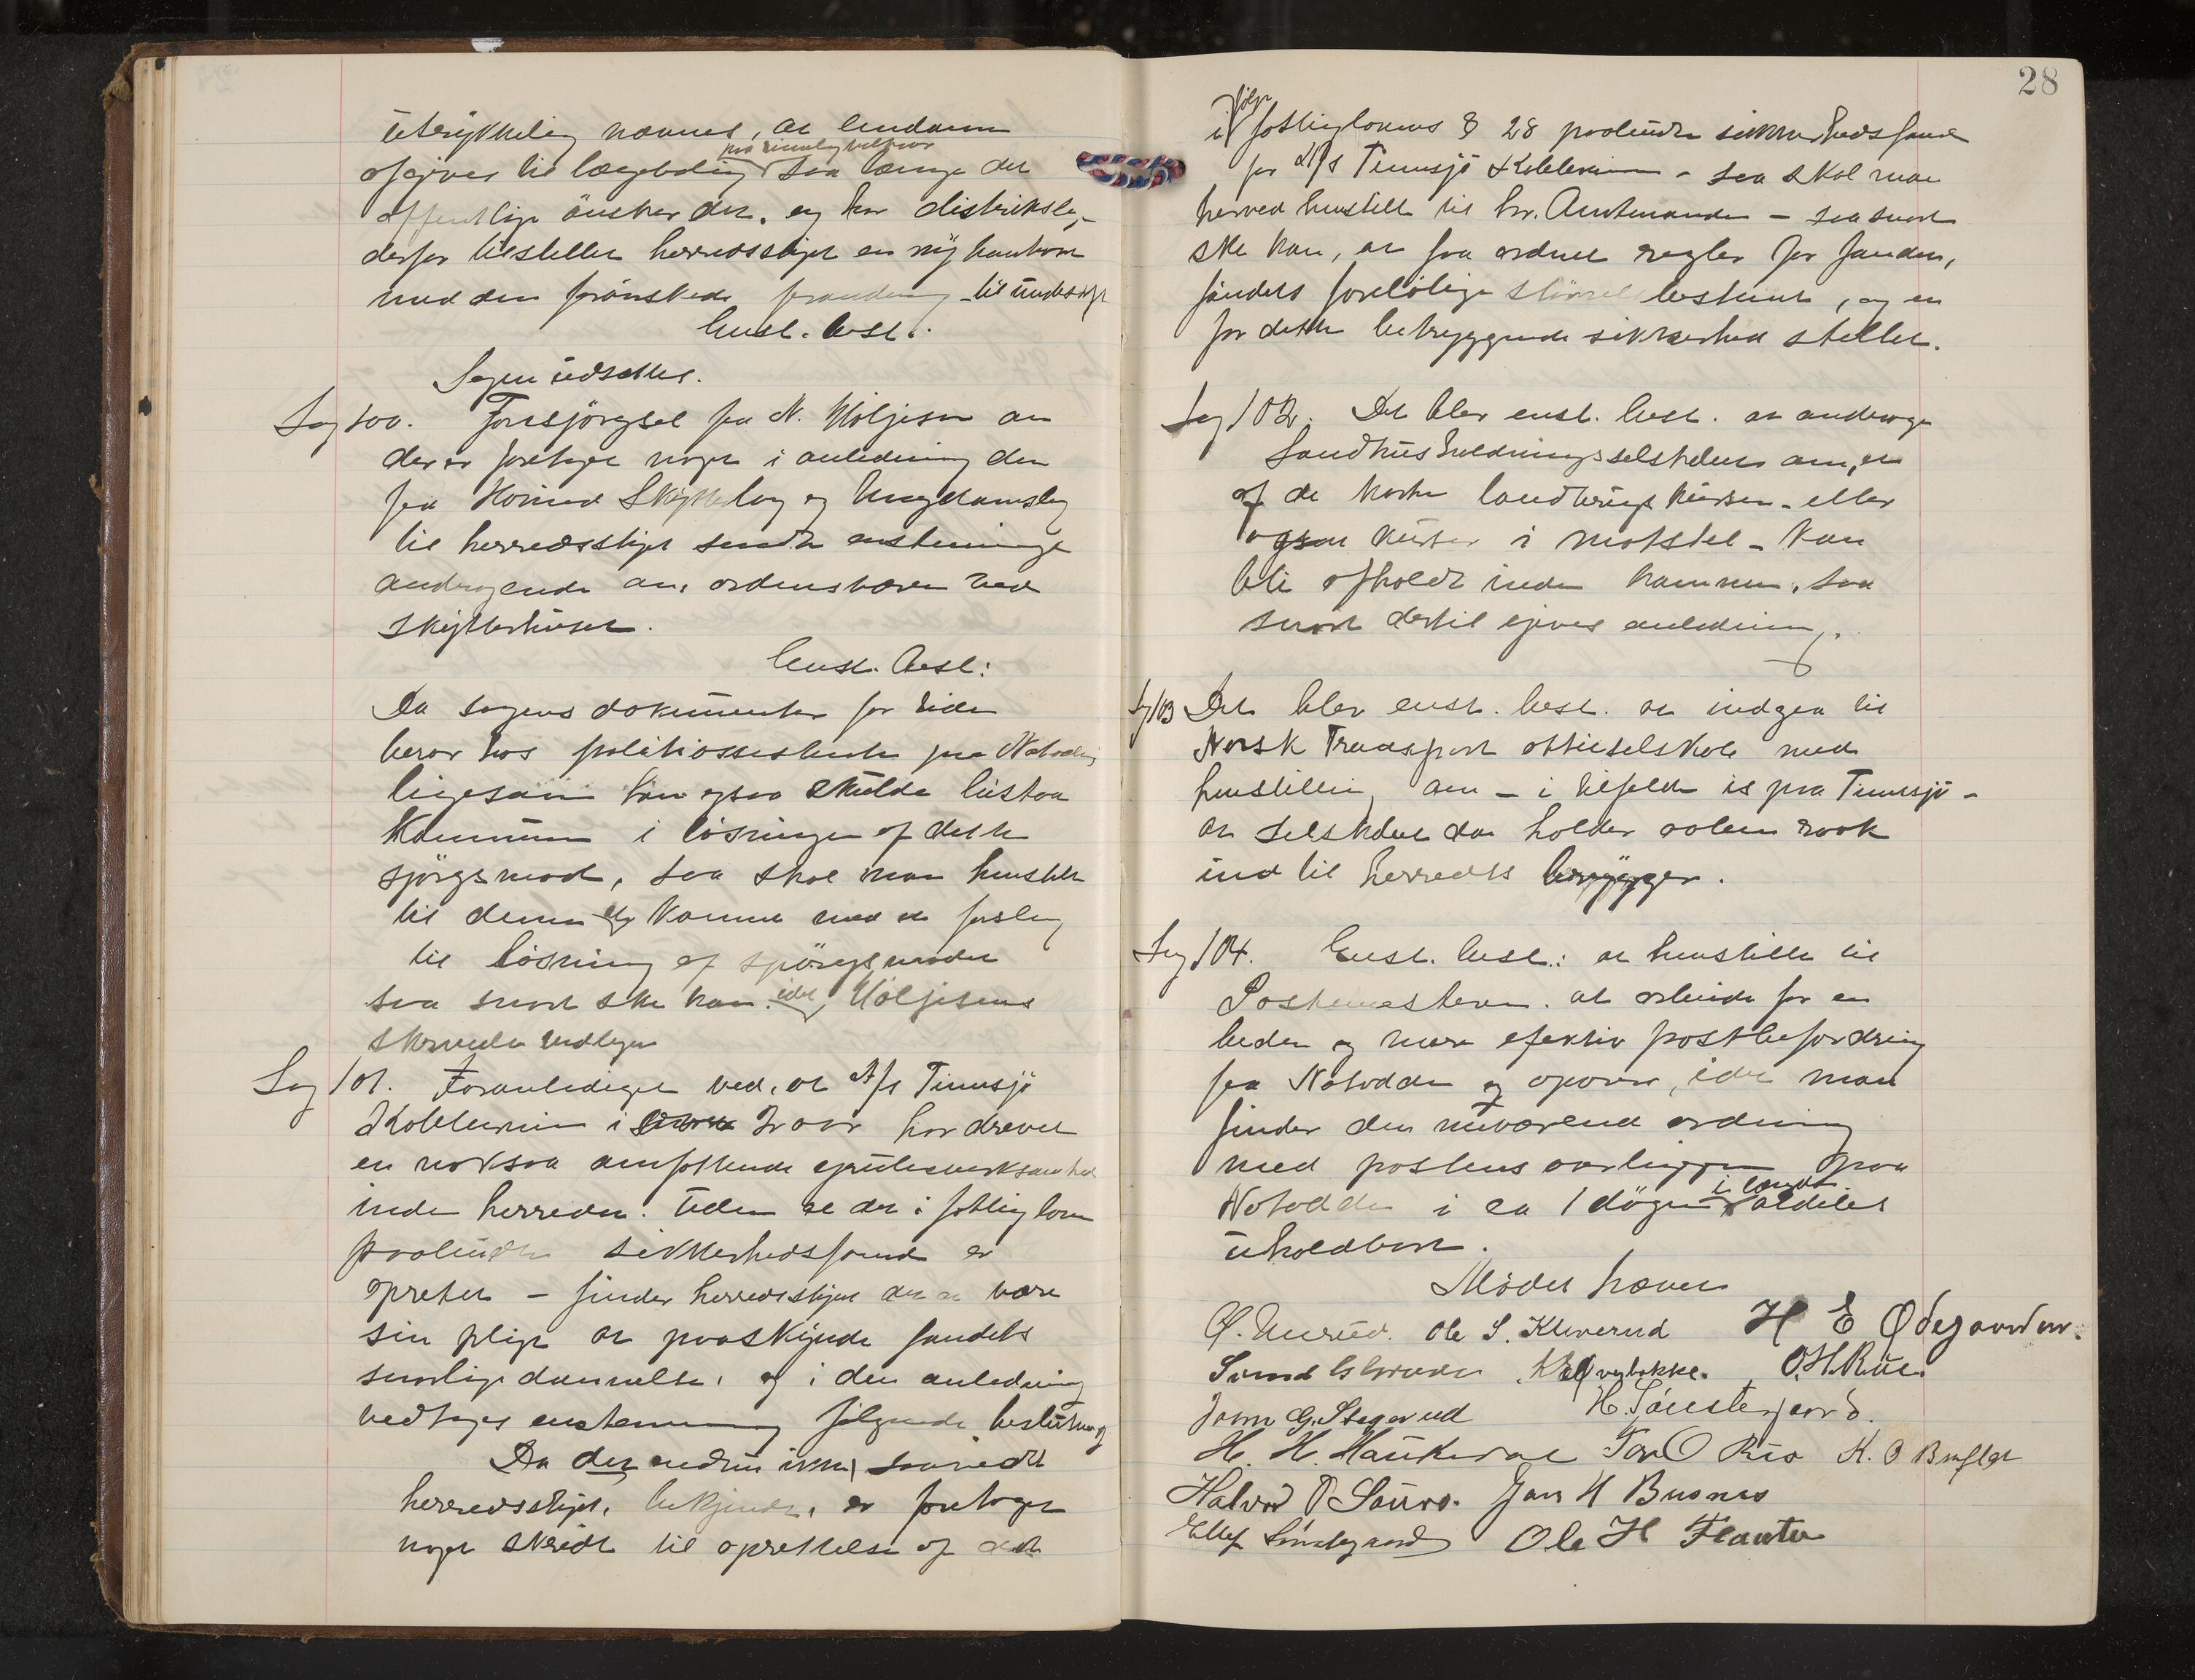 udtrykkelig nævnes, at eiendommen
afgives til lægebolig paa rimelig vilkaar saa længe det
offentlige ønsker det, og har distriktslæ-
derfor tilstillet herredsstyret en ny kontrakt
med den forønskede forandring - til underskr.
Enst. besl.
Sagen udsættes.
Sag 100. Forespørgsel fra N. Møljesen om
der er foretaget noget i anledning den
fra Hovind Skytterlag og Ungdomslag
til herredsstyret sendte enstemmige
andragende om ordensværn ved
skytterhuset.
Enst. besl:
Da sagens dokumenter for tiden
beror hos politiassistenten paa Notodden
ligesom han ogsaa skulde bistaa
Kommunen i løsningen af dette
spørgsmaal, saa skal man henstille
til denne at komme med et forslag
til løsning af spørgsmaalet
saa snart ske kan, idet Møljesens
skrivelse vedlægges
Sag 101. Foranlediget ved, at A/s Tinnsjø
Kobbermine i 2 aar har drevet
en noksaa omfattende grubevirksomhed
inden herredet. uden at det i fattigloven
paabudte sikkerhedsfond er
oprettet - finder herredsstyret det at være
sin pligt at paaskynde fondets
snarlige dannelse, og i den anledning
vedtages enstemmig følgende beslutning
Da der endnu ikke, saavidt
herredsstyret, bekjendt, er foretaget
noget skridt til oprettelse af det
28
ifølge fattiglovens § 28 paabudte sikkerhedsfond
for A/s Tinnsjø Kobbermine - saa skal man
herved henstille til hr. Amtmanden - saa snart
ske kan, at faa ordnet regler for fondet,
fondets foreløbige størrelse bestemt, og en
for dette betryggende sikkerhed stillet.
Sag 102. Det blev enst. besl. at andrage
Landhusholdningsselskabet om, at
af de korte landbrugskurser - eller
ogsaa kurser i matstel - kan
bli afholdt inden kommunen, saa
snart dertil gives anledning.
Sag 103 Det blev enst. besl. at indgaa til
Norsk Transport aktieselskab med
henstilling om - i tilfælde is paa Tinnsjø -
at selskabet da holder aaben raak
ind til herredets brygger.
Sag 104. Enst. besl.: at henstille til
Postmesteren at arbeide for en
bedre og mere efektiv postbefordring
fra Notodden og opover, idet man
finder den nuværende ordning
med postens overliggen paa
Notodden i ca 1 døgn i længden aldeles
uholdbart.
Mødet hævet
O. Ole S. Kleverud H E Ødegaarden.
O.H. Rue.
John G. Stegarud H. Tønstergaard.
H. H. Haukaas Tor O Rio K. O Busflat
Halvor O Saure. Jan H Busnes
Ellef Sønstegaard Ole H Flaata